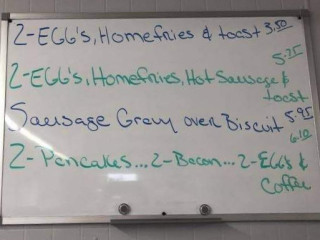 2-EGG's, Homefries & toast 3.50
2-EGG's, Homefries, Hot Sausage & toast 5.25
Sausage Gravy over Biscuit 5.95
2-Pancakes...2-Bacon...2-EGGs & Coffee 6.10